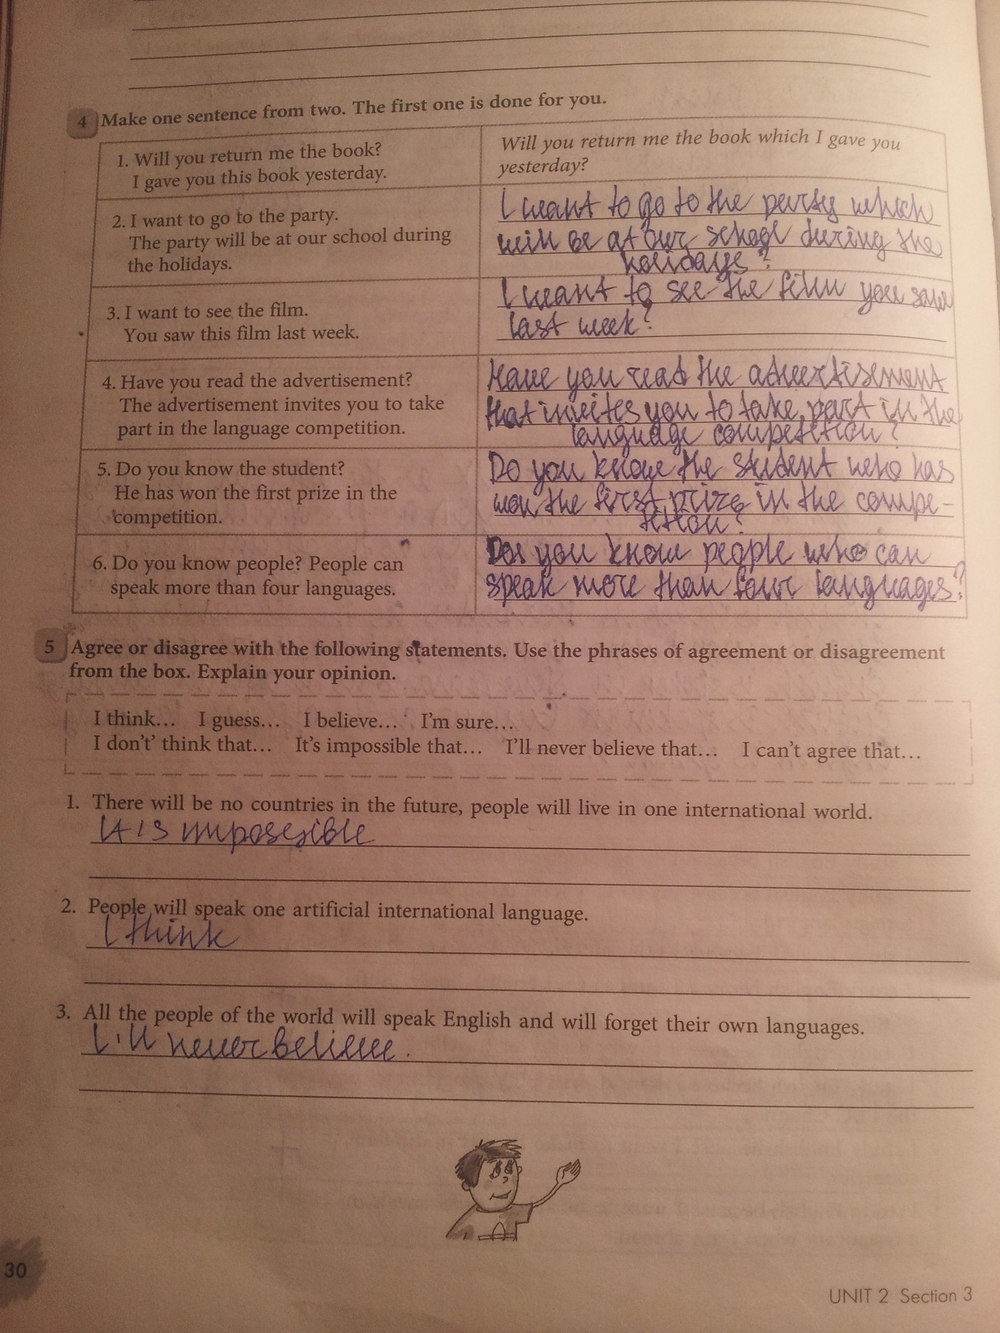 4 Make one sentence from two. The first one is done for you.
1. Will you return me the book?
I gave you this book yesterday.
Will you return me the book which I gave you
yesterday?
2. I want to go to the party.
The party will be at our school during
the holidays.
I want to go to the party which
will be at our school during the
holidays?
3. I want to see the film.
You saw this film last week.
I want to see the film you saw
last week?
4. Have you read the advertisement?
The advertisement invites you to take
part in the language competition.
Have you read the advertisement
that invites you to take part in the
language competition?
5. Do you know the student?
He has won the first prize in the
competition.
Do you know the student who has
won the first prize in the compe-
tition?
6. Do you know people? People can
speak more than four languages.
Do you know people who can
speak more than four languages?
5 Agree or disagree with the following statements. Use the phrases of agreement or disagreement
from the box. Explain your opinion.
I think... I guess... I believe... I'm sure...
I don't' think that... It's impossible that... I'll never believe that... I can't agree that...
1. There will be no countries in the future, people will live in one international world.
It is imposesible
2. People will speak one artificial international language.
I think
3. All the people of the world will speak English and will forget their own languages.
I'll never believe.
30
UNIT 2 Section 3